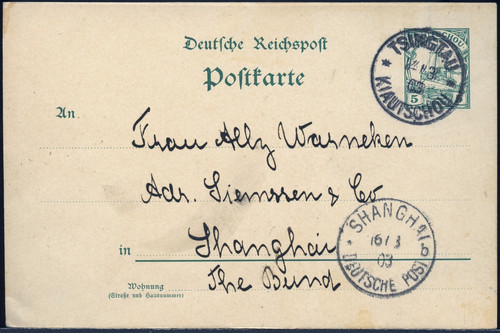 Deutsche Reichspost
Postkarte
TSINGTAU
KIAUTSCHOU
5
An
Frau Ally Warneken
Adr. Siemssen & Co
in Shanghai
The Bund
Wohnung
(Straße und Hausnummer)
SHANGHAI
16/3
03
DEUTSCHE POST
b